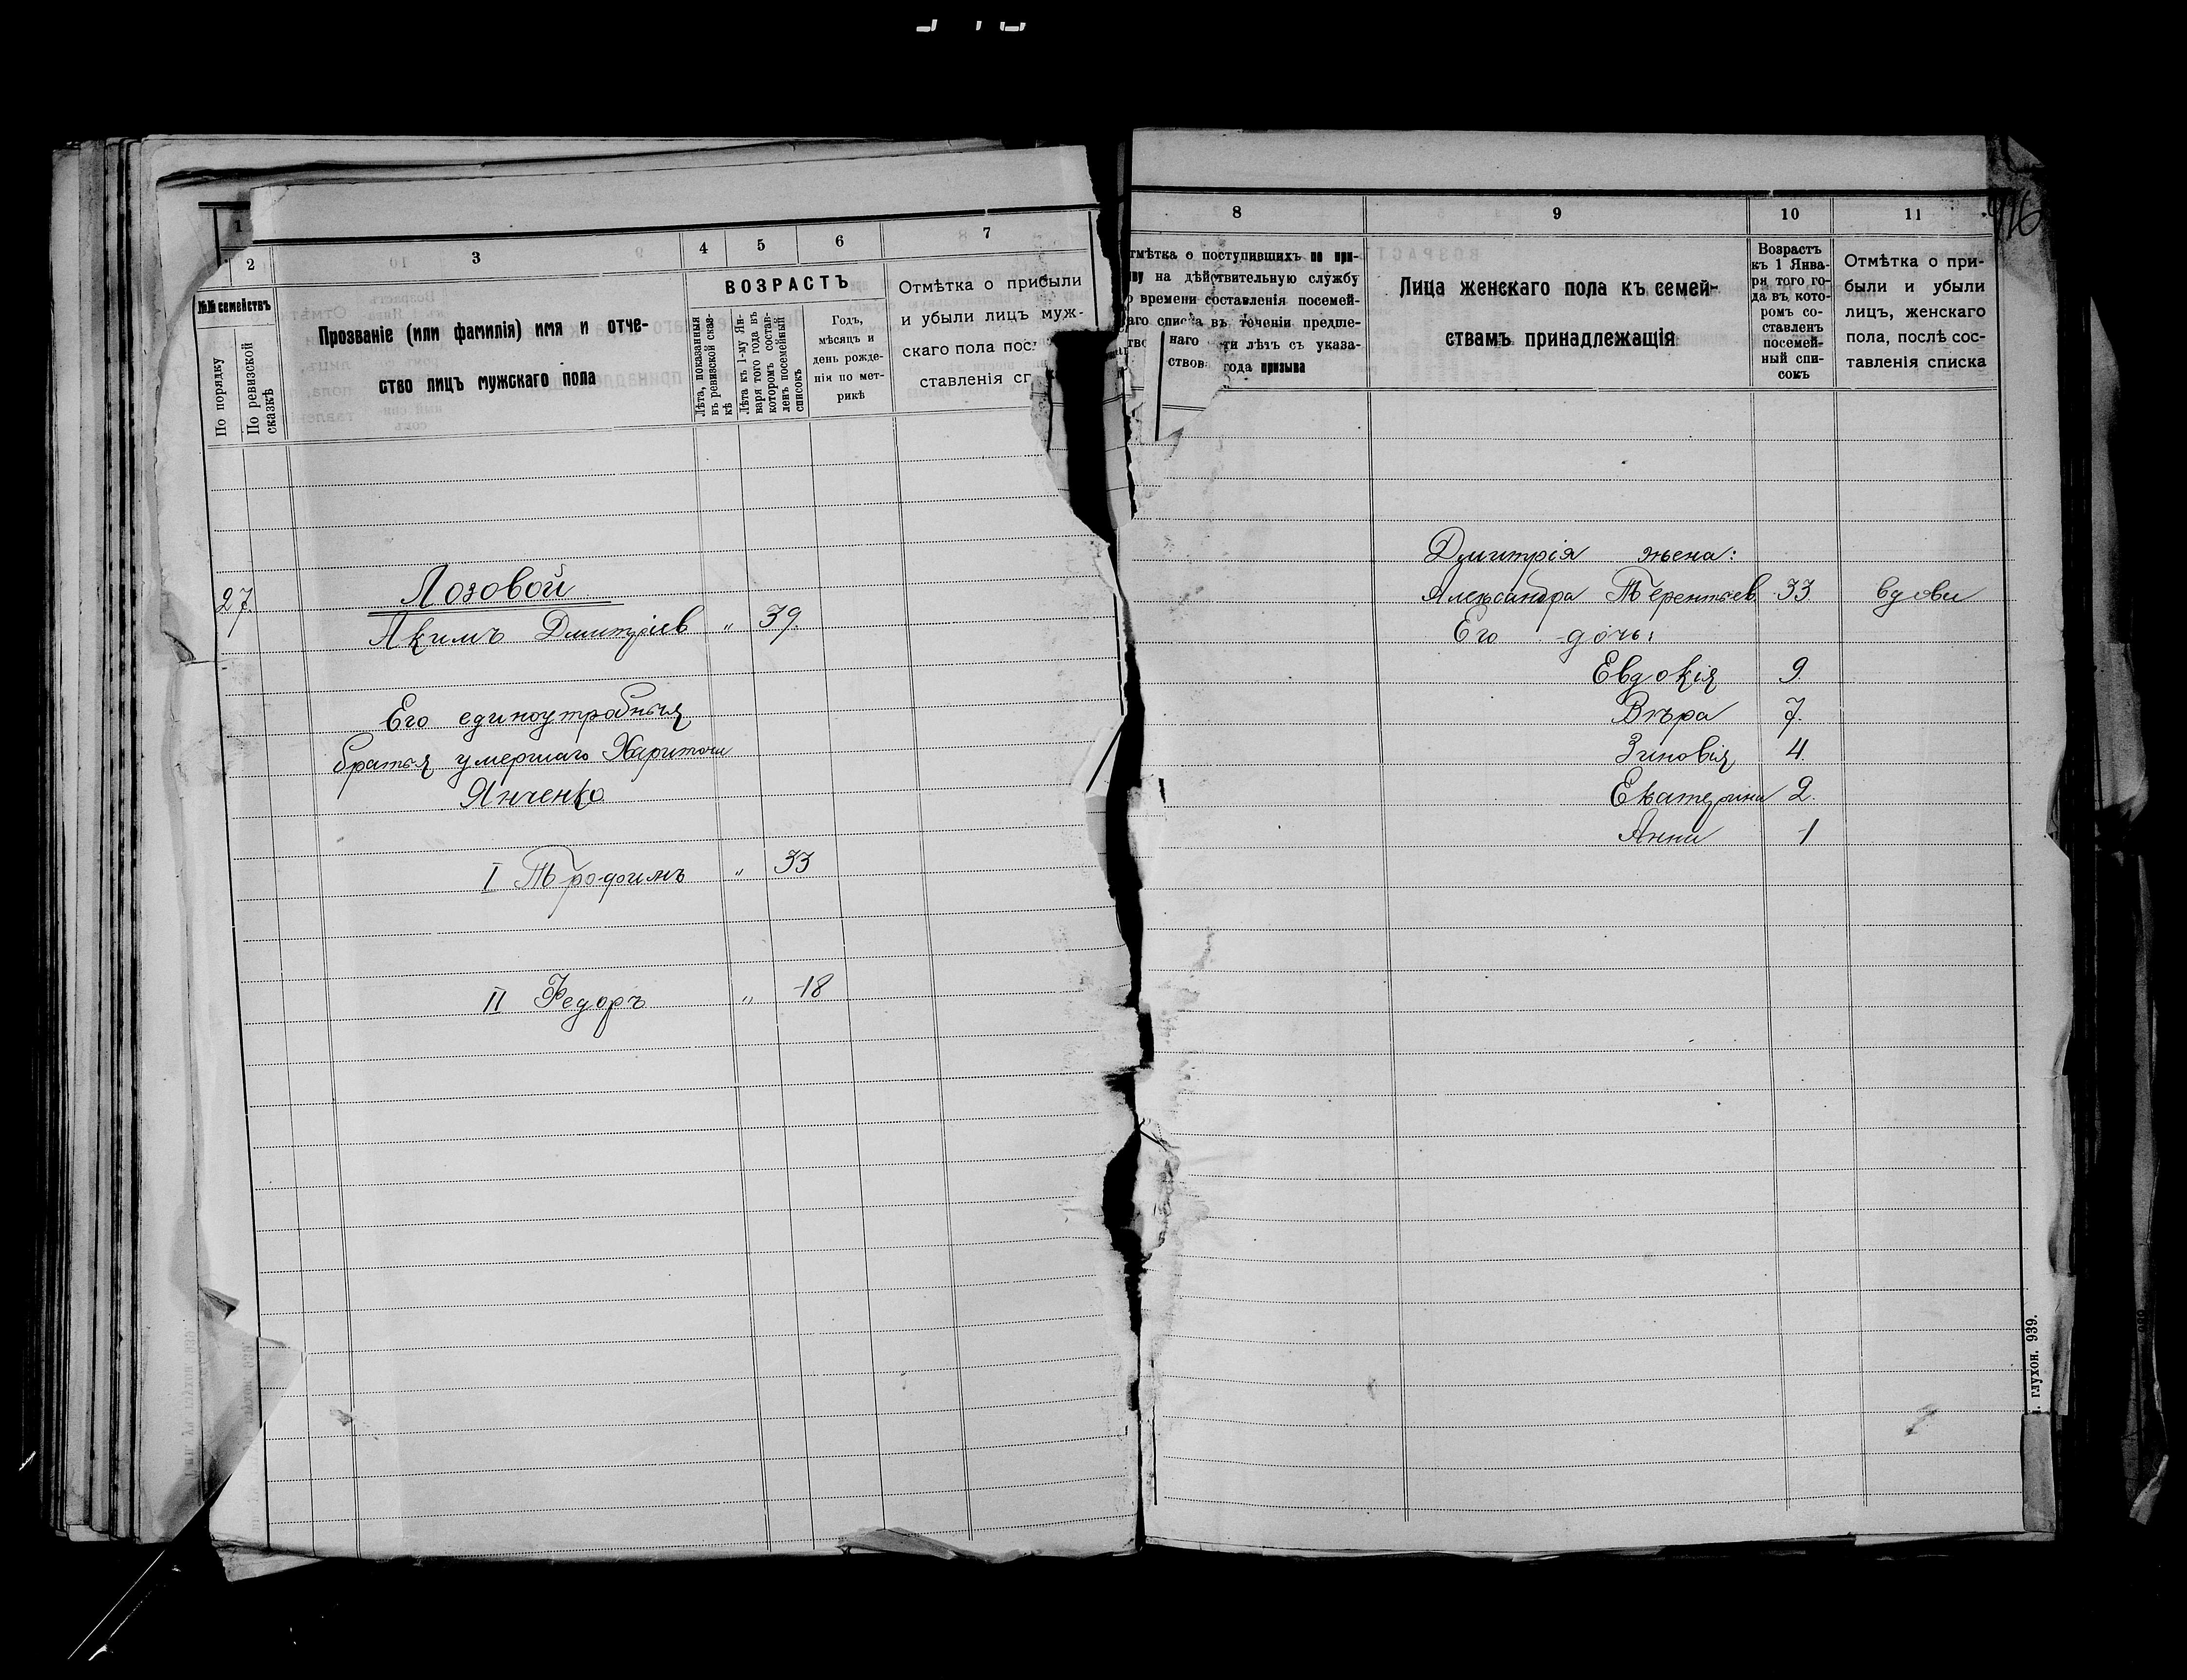 1
2
3
4
5
6
7
№№ семействъ
По порядку
По ревизской сказкѣ
Прозваніе (или фамилія) имя и отче-
ство лицъ мужскаго пола
ВОЗРАСТЪ
Лѣта, показанныя
въ ревизской сказ-
кѣ
Лѣта къ 1-му Ян-
варя того года въ
которомъ состав-
ленъ посемейный
списокъ
Годъ,
мѣсяцъ и
день рожде-
нія по мет-
рикѣ
Отмѣтка о прибыли
и убыли лицъ муж-
скаго пола пос
ставленія сп
27.
Лозовой
Акимъ Дмитріев „ 39.
Его единоутробныя
братья умершаго Харитона
Янченко
I Трофимъ „ 33
II Федоръ „ 18
8
9
10
11
916
тмѣтка о поступившихъ по при-
ву на дѣйствительную службу
о времени составленія посемей-
аго списка въ теченіи предше-
ти лѣтъ съ указа-
года призыва
наго
ствов
Лица женскаго пола къ семей-
ствамъ принадлежащія
Возрастъ
къ 1 Янва-
ря того го-
да въ кото-
ромъ со-
ставленъ
посемей-
ный спи-
сокъ
Отмѣтка о при-
были и убыли
лицъ, женскаго
пола, послѣ сос-
тавленія списка
Дмитрія жена:
Александра Терентьев. 33 вдова
Его дочь:
Евдокія 9.
Вѣра 7.
Зиновія 4
Екатерина 2.
Анна 1
глухон. 939.